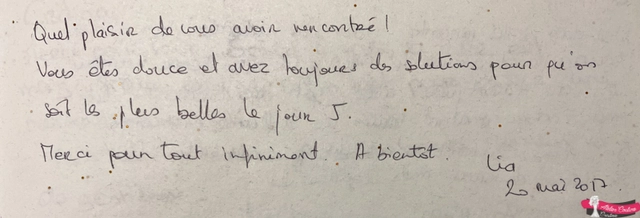 Quel plaisir de vous avoir rencontré !
Vous êtes douce et avez toujours des solutions pour qu'on
soit les plus belles le jour J.
Merci pour tout infiniment. A bientot.
Lia
20 mai 2017.